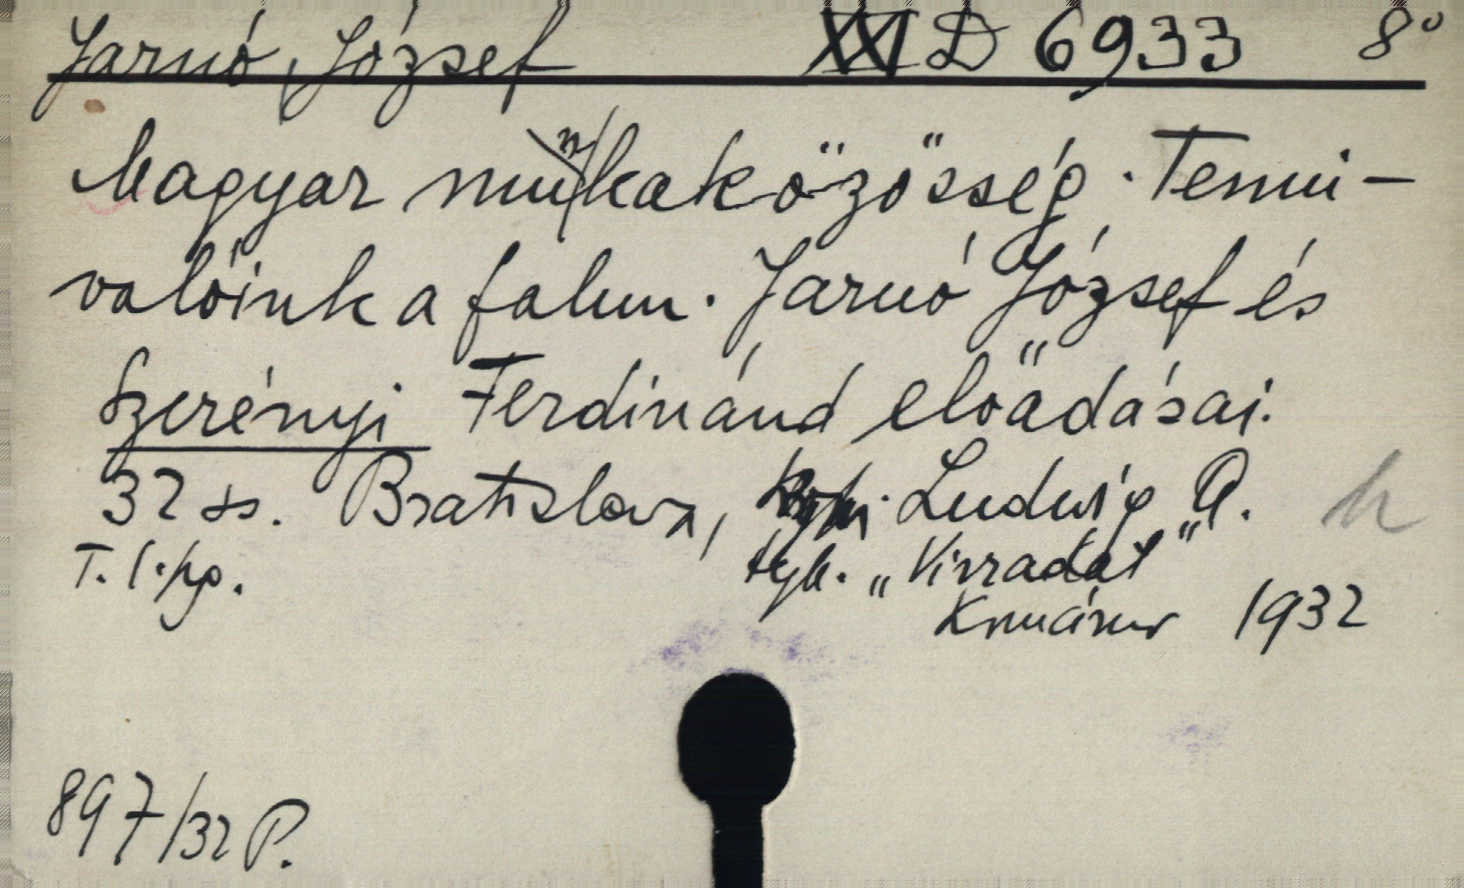 Jarnó, József XXI D 6933 8°
Magyar munkaközösség. Tenni-
valóink a falun. Jarnó József és
Szerényi Ferdinánd előadásai.
32 ss. Bratislava, Ludwig A. h
T. l. np. Tyk. „Virradat"
Komárno 1932
897/32 P.